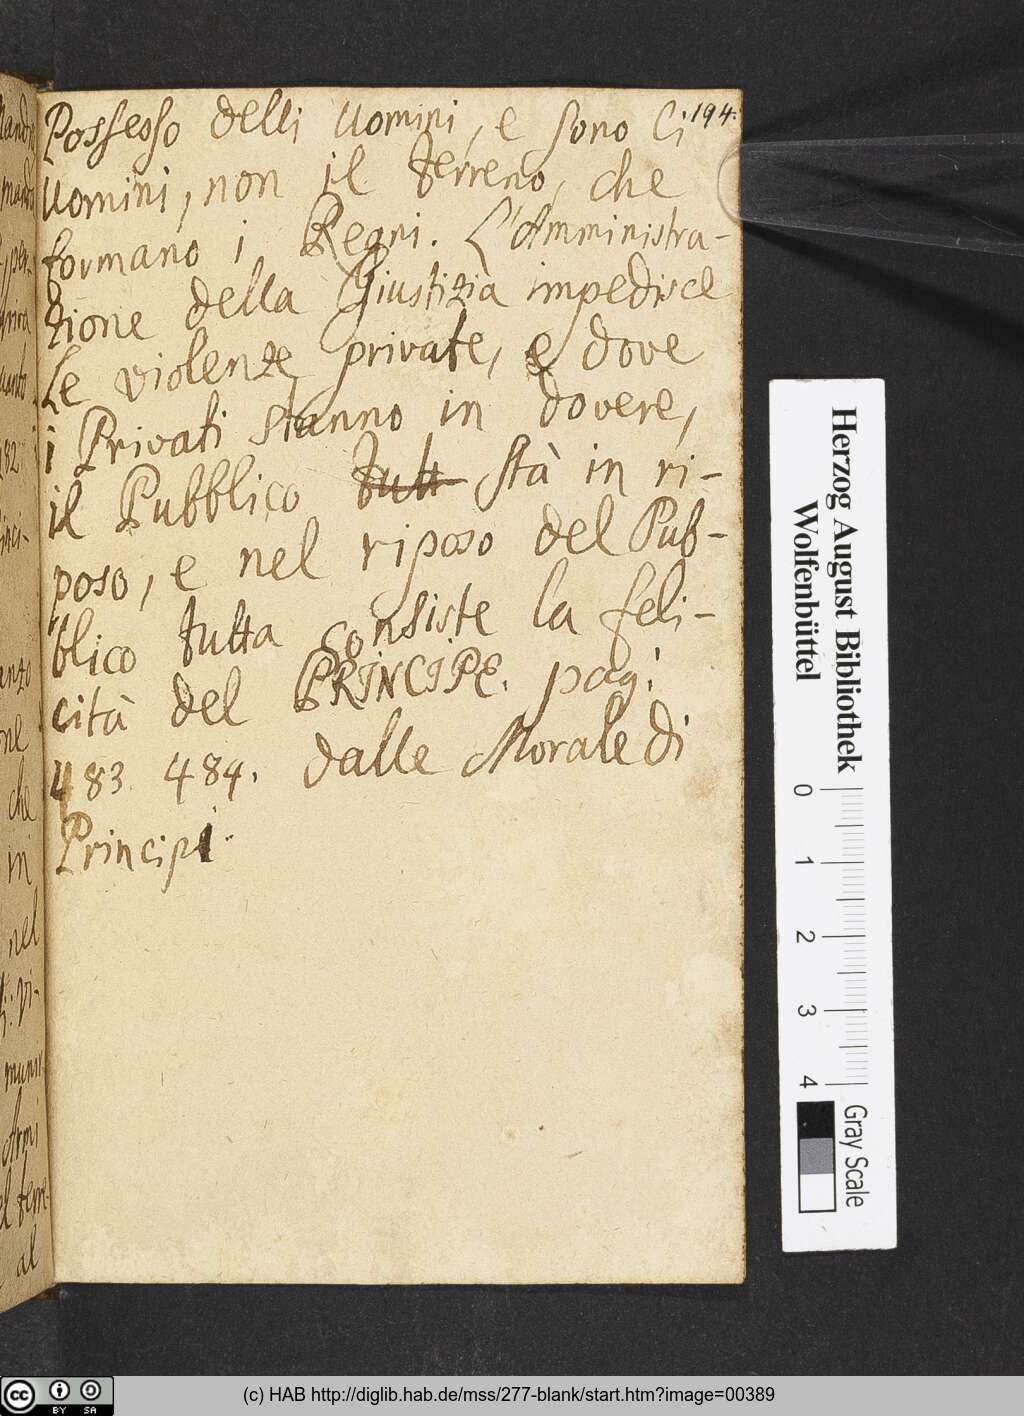 194.
Possesso delli Uomini, e sono li
Uomini, non il terreno, che
formano i Regni. L'Amministra-
zione della Giustizia impedisce
le violenze private, e dove
i Privati stanno in dovere,
il Pubblico tutt stà in ri-
poso, e nel riposo del Pub-
blico tutta consiste la feli-
cità del PRINCIPE. pag:
483. 484. dalle Morale di
Principi.
che
in
nel
al
Herzog August Bibliothek
Wolfenbüttel
0 1 2 3 4
Gray Scale
cc BY SA
(c) HAB http://diglib.hab.de/mss/277-blank/start.htm?image=00389